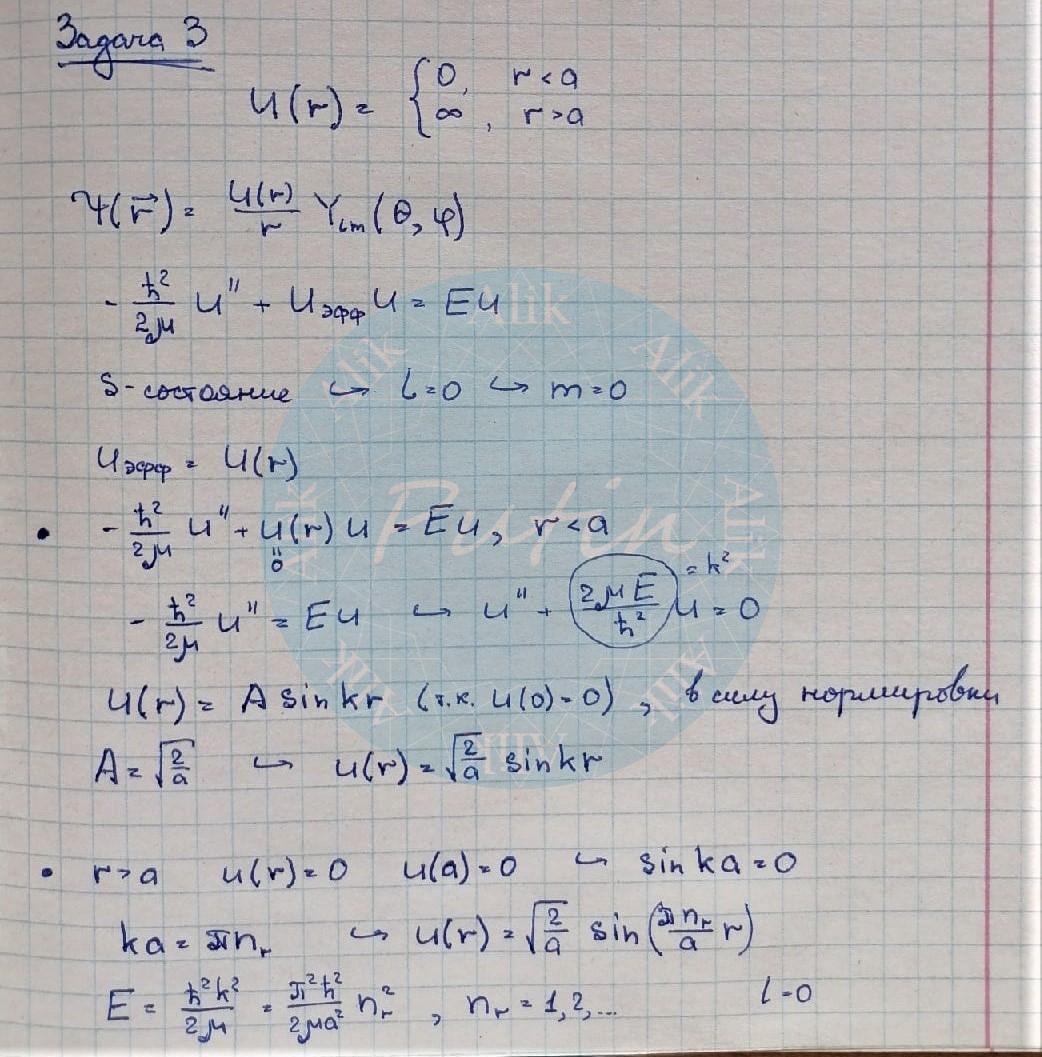 Задача 3
U(r) = { 0, r < a
∞, r > a
Ψ(r⃗) = u(r)/r Yₗₘ(θ, φ)
- ħ²/2μ u'' + Uэфф u = Eu
S-состояние ↪ l=0 ↪ m=0
Uэфф = U(r)
• - ħ²/2μ u'' + U(r) u = Eu, r < a
0
- ħ²/2μ u'' = Eu ↪ u'' + 2μE/ħ² u = 0
= k²
u(r) = A sin kr (т.к. u(0) = 0), в силу нормировки
A = √(2/a) ↪ u(r) = √(2/a) sin kr
• r > a u(r) = 0 u(a) = 0 ↪ sin ka = 0
ka = πnᵣ ↪ u(r) = √(2/a) sin(πnᵣ/a r)
E = ħ²k²/2μ = π²ħ²/2μa² nᵣ², nᵣ = 1, 2, ... l = 0
Alik
Alik
Alik
Alik
Alik
Alik
Alik
Alik
Putin